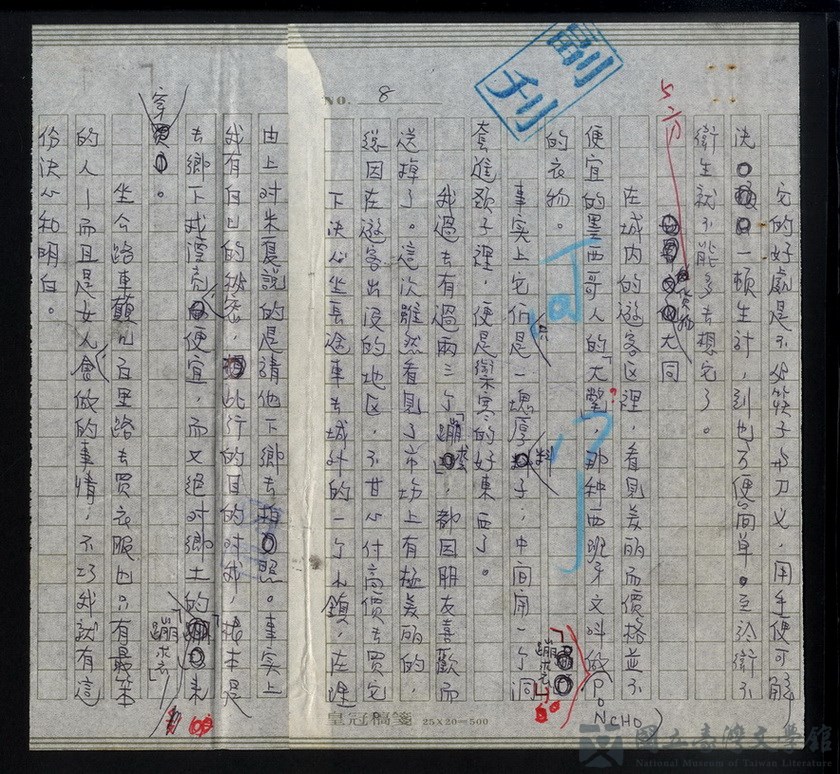 副刊
NO. 8
它的好處是不必筷子与刀叉，用手便可解
決一頓生計，到也方便简单。至於衛不
衛生就不能多去想它了。
五、六
大同
在城内的遊客区裡，看見美丽而價格並不
便宜的墨西哥人的「大氅」，那种西班牙文叫做（PONCHO）
「蹦裘」
的衣物。
事实上它们只是一塊厚料子，中间开一个洞
套進頸子裡，便是禦寒的好東西了。
我過去有過兩三个「蹦裘」，都因朋友喜歡而
送掉了。這次雖然看見了市场上有極美丽的，
總因在遊客出没的地区，不甘心付高價去買它
下決心坐長途車去城外的一个小鎮，在理
由上对米夏說的是請他下鄉去拍照。事实上
我有自己的秘密，此行的目的对我，根本是
去鄉下找漂亮便宜，而又絕对鄉土的「蹦裘」來
穿。
坐公路車顛几百里路去買衣服也只有最笨
的人－而且是女人會做的事情，不巧我就有這
份決心和明白。
皇冠稿箋 25X20=500
國立臺灣文學館
National Museum of Taiwan Literature